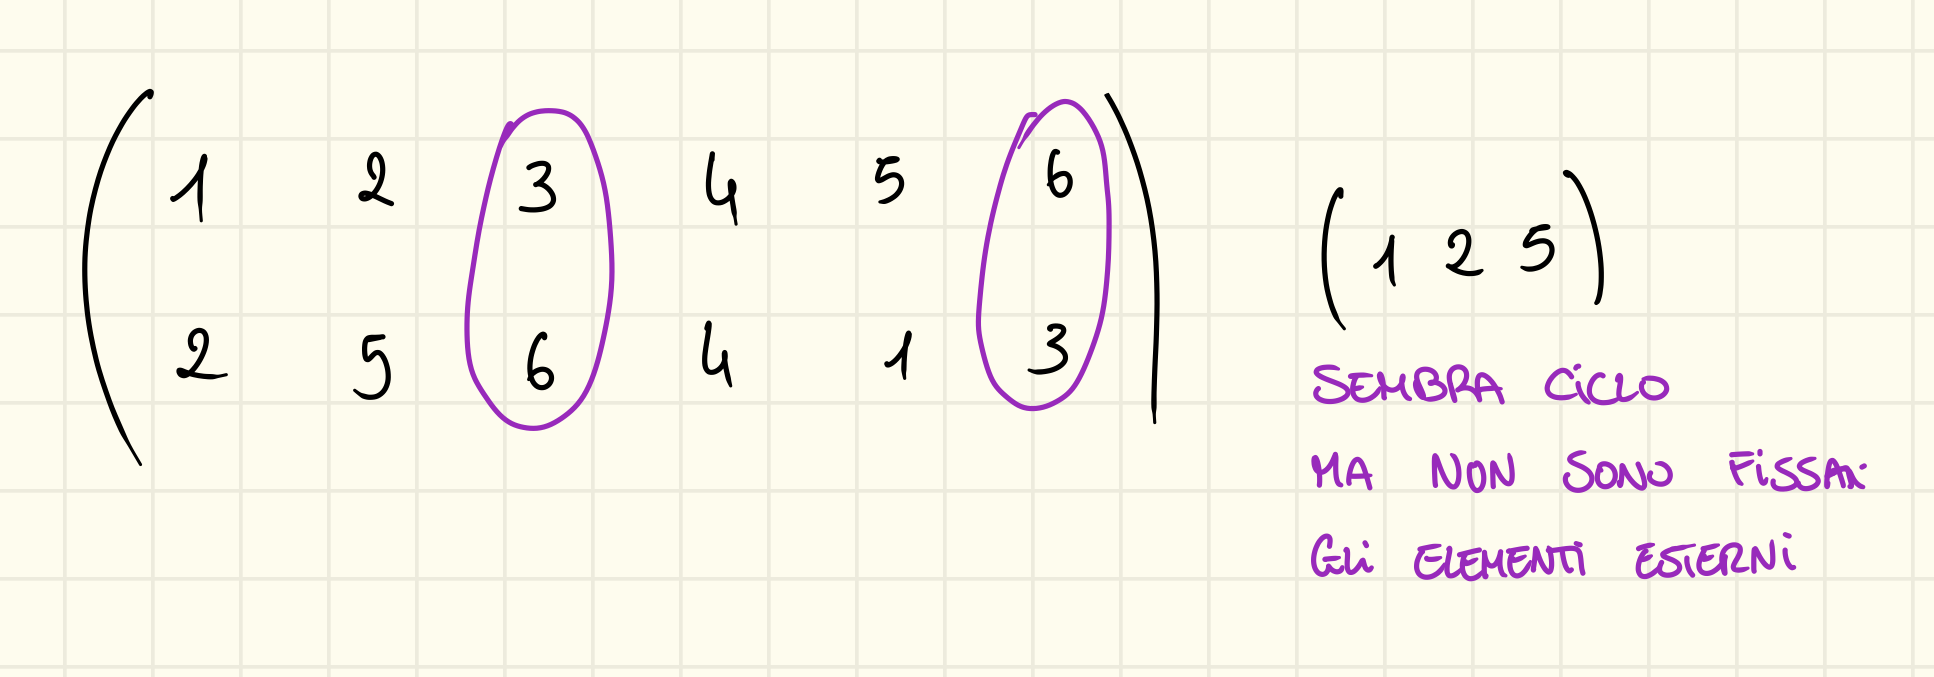 ( 1 2 3 4 5 6
2 5 6 4 1 3 )
( 1 2 5 )
SEMBRA CiCLO
MA NON SONO FiSSAi
GLi ELEMENTi ESTERNi